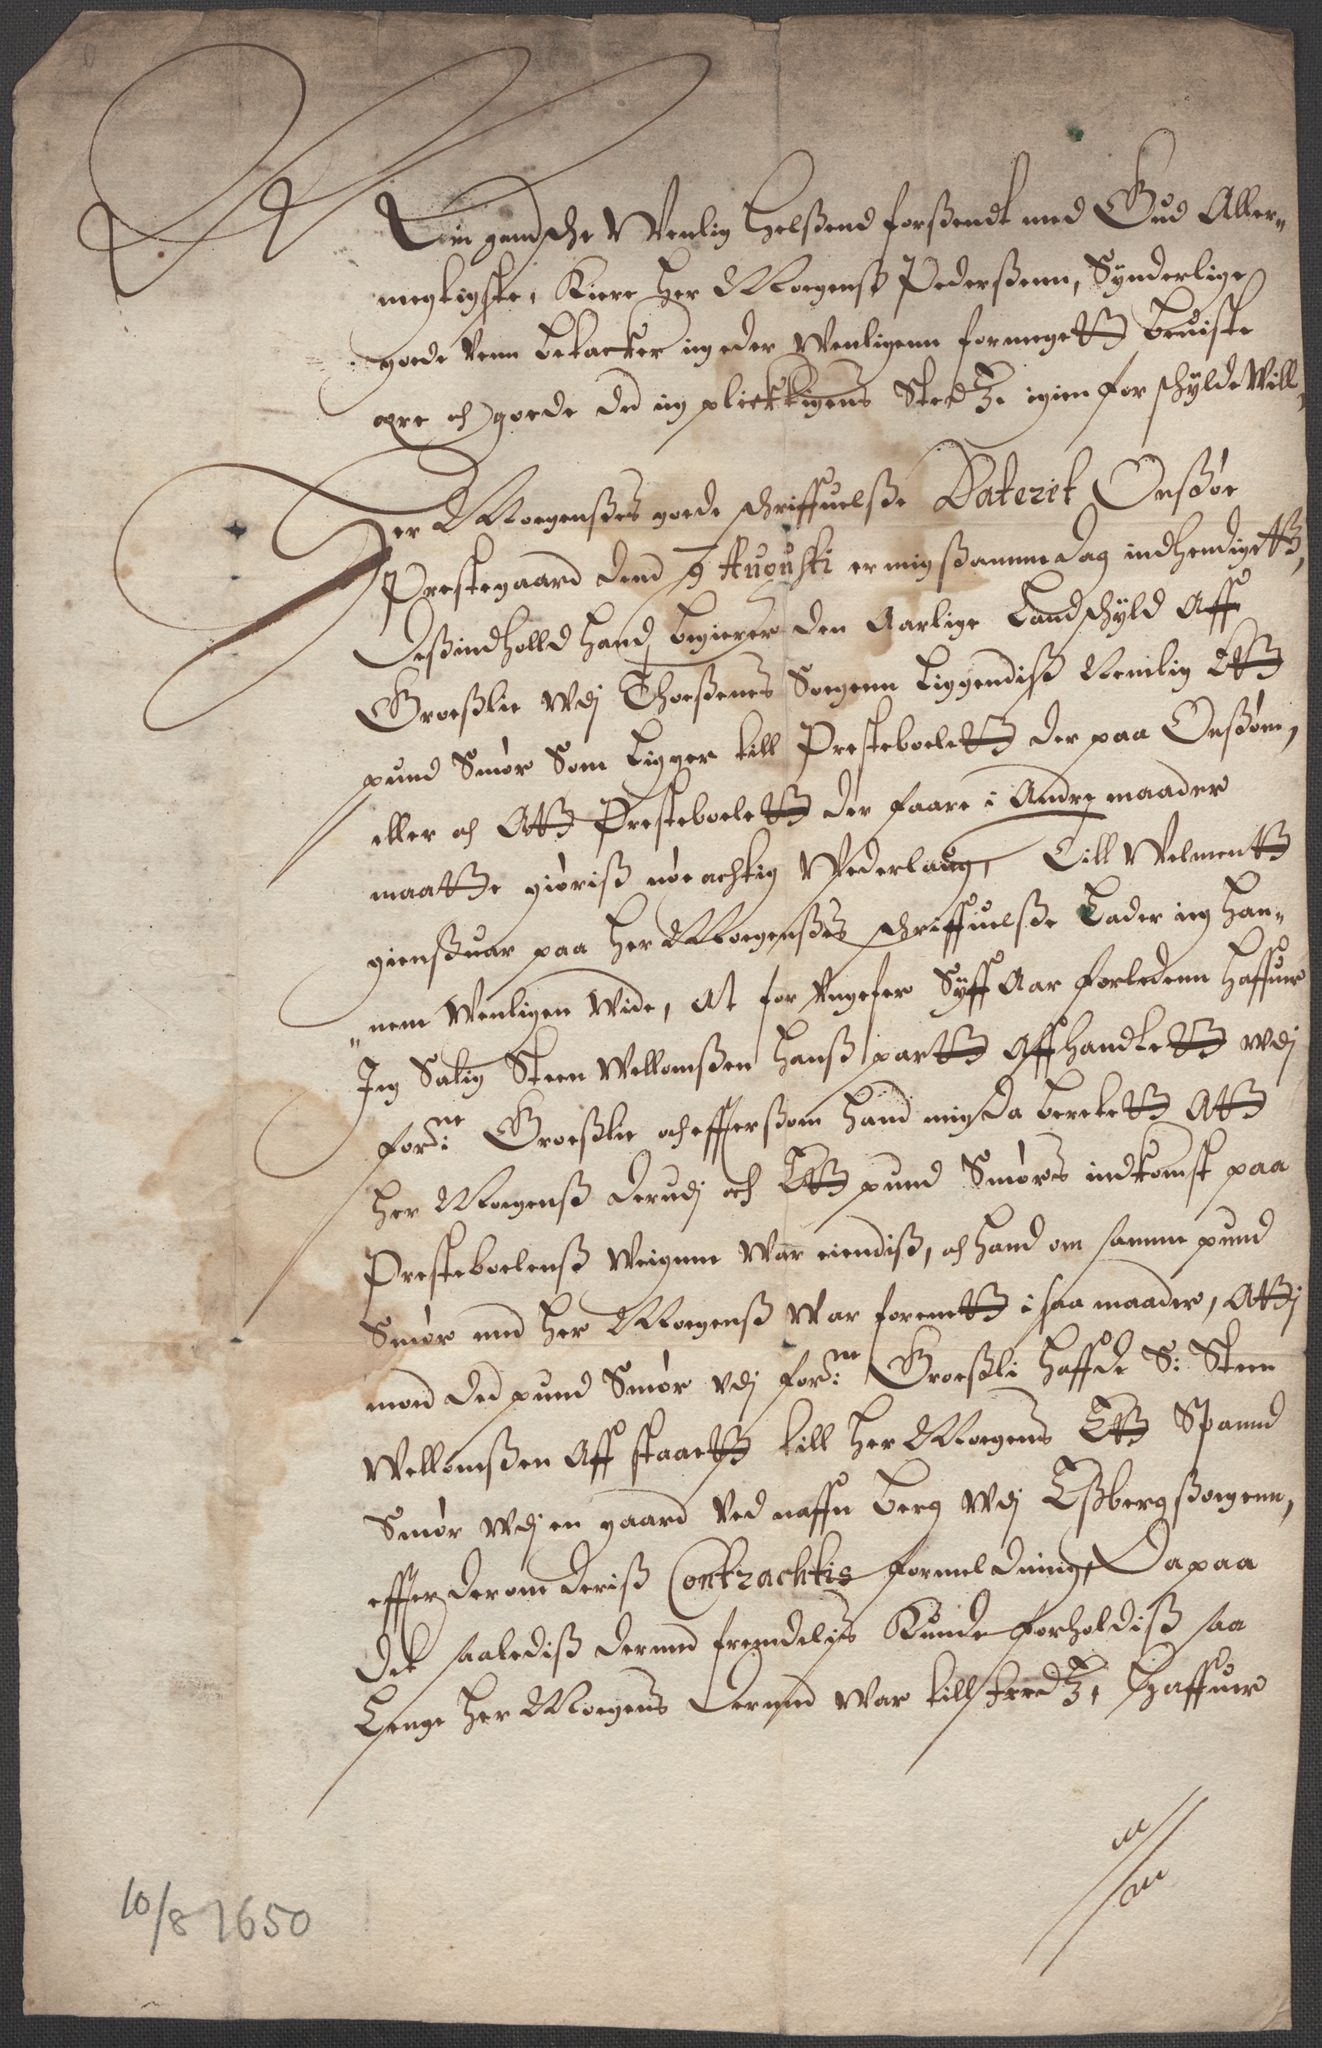 Min gandsche Wenlig helßend forßendt med Gud Aller„
megtigste, Kiere Her Mogenß Pederßenn, Synderlige
goede Venn betacker ieg eder Wenligenn for megett beuiste
ære och goede ded ieg plicktigens Stedtze igien forschylde Will,
Her Mogenßes goede schriffuelße Daterit Onßøe
Prestegaard dend 9 Augusti er mig ßamme dag indhendigett,
Deßindholld hand begierer den Aarlige Landschyld Aff
Groeßlie Wdj Thoeßenes Sogenn Liggendiß Nemlig Ett
pund Smør Som Ligger till Presteboelett der paa Onßøen,
eller och Att Presteboelett der faare i Andre maader
maatte giøriß nøeachtig Wederlaug, Till Welment
gienßuar paa Her Mogenßes schriffuelße Lader ieg Han„
„nem Wenligen Wide, At for Vngefer Syff Aar forledenn haffuer
Jeg Salig Steen Wellomßen hanß partt Affhandlett wdj
forne: Groeßlie och effterßom hand mig da berettet Att
Her Mogenß derudj och Ett pund Smørs indkomst paa
Presteboelenß Weignne War eiendiß, och hand om samme pund
Smør med Her Mogenß War forenett i saa maader, Att j
mod ded pund Smør vdj forne: Groeßli haffde S: Steen
Wellomßen Aff staaett till Her Mogens Ett Spannd
Smør Wdj en gaard Ved naffn Berg Wdj Eßbergßogenn,
effter derom deriß Contrachtis formeldning, Da paa
det saalediß dermed fremdelis Kunde forholdiß saa
Lenge Her Mogens dermed War tillfredtz, Haffuer
10/8 1650